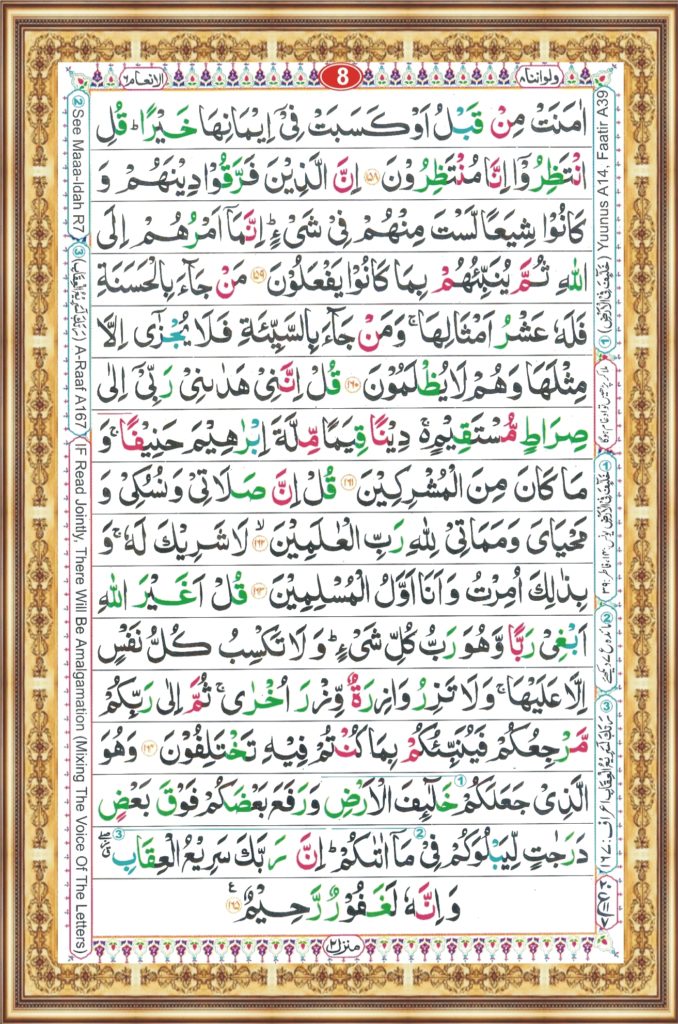 ولواننا ٨
8
الانعام ٦
اٰمَنَتْ مِنْ قَبْلُ اَوْ كَسَبَتْ فِیْۤ اِیْمَانِهَا خَیْرًا ؕ قُلِ
انْتَظِرُوْۤا اِنَّا مُنْتَظِرُوْنَ ﴿۱۵۸﴾ اِنَّ الَّذِیْنَ فَرَّقُوْا دِیْنَهُمْ وَ
كَانُوْا شِیَعًا لَّسْتَ مِنْهُمْ فِیْ شَیْءٍ ؕ اِنَّمَاۤ اَمْرُهُمْ اِلَی
اللّٰهِ ثُمَّ یُنَبِّئُهُمْ بِمَا كَانُوْا یَفْعَلُوْنَ ﴿۱۵۹﴾ مَنْ جَآءَ بِالْحَسَنَةِ
فَلَهٗ عَشْرُ اَمْثَالِهَا ۚ وَمَنْ جَآءَ بِالسَّیِّئَةِ فَلَا یُجْزٰۤی اِلَّا
مِثْلَهَا وَهُمْ لَا یُظْلَمُوْنَ ﴿۱۶۰﴾ قُلْ اِنَّنِیْ هَدٰىنِیْ رَبِّیْۤ اِلٰی
صِرَاطٍ مُّسْتَقِیْمٍ ۚ دِیْنًا قِیَمًا مِّلَّةَ اِبْرٰهِیْمَ حَنِیْفًا ۚ وَ
مَا كَانَ مِنَ الْمُشْرِكِیْنَ ﴿۱۶۱﴾ قُلْ اِنَّ صَلَاتِیْ وَنُسُكِیْ وَ
مَحْیَایَ وَمَمَاتِیْ لِلّٰهِ رَبِّ الْعٰلَمِیْنَ ﴿۱۶۲﴾ ۙ لَا شَرِیْكَ لَهٗ ۚ وَ
بِذٰلِكَ اُمِرْتُ وَاَنَا اَوَّلُ الْمُسْلِمِیْنَ ﴿۱۶۳﴾ قُلْ اَغَیْرَ اللّٰهِ
اَبْغِیْ رَبًّا وَّهُوَ رَبُّ كُلِّ شَیْءٍ ؕ وَلَا تَكْسِبُ كُلُّ نَفْسٍ
اِلَّا عَلَیْهَا ۚ وَلَا تَزِرُ وَازِرَةٌ وِّزْرَ اُخْرٰی ۚ ثُمَّ اِلٰی رَبِّكُمْ
مَّرْجِعُكُمْ فَیُنَبِّئُكُمْ بِمَا كُنْتُمْ فِیْهِ تَخْتَلِفُوْنَ ﴿۱۶۴﴾ وَهُوَ
الَّذِیْ جَعَلَكُمْ خَلٰٓئِفَ الْاَرْضِ وَرَفَعَ بَعْضَكُمْ فَوْقَ بَعْضٍ
دَرَجٰتٍ لِّیَبْلُوَكُمْ فِیْ مَاۤ اٰتٰىكُمْ ؕ اِنَّ رَبَّكَ سَرِیْعُ الْعِقَابِ ۖ
وَاِنَّهٗ لَغَفُوْرٌ رَّحِیْمٌ ﴿۱۶۵﴾ ع
منزل ٢
① (خَلٰٓئِفَ فِی الْاَرْضِ) Yuunus A14, Faatir A39
② See Maaa-Idah R7 ③ (رَبَّكَ لَسَرِیْعُ الْعِقَابِ) A-Raaf A167 (IF Read Jointly, There Will Be Amalgamation (Mixing The Voice Of The Letters)